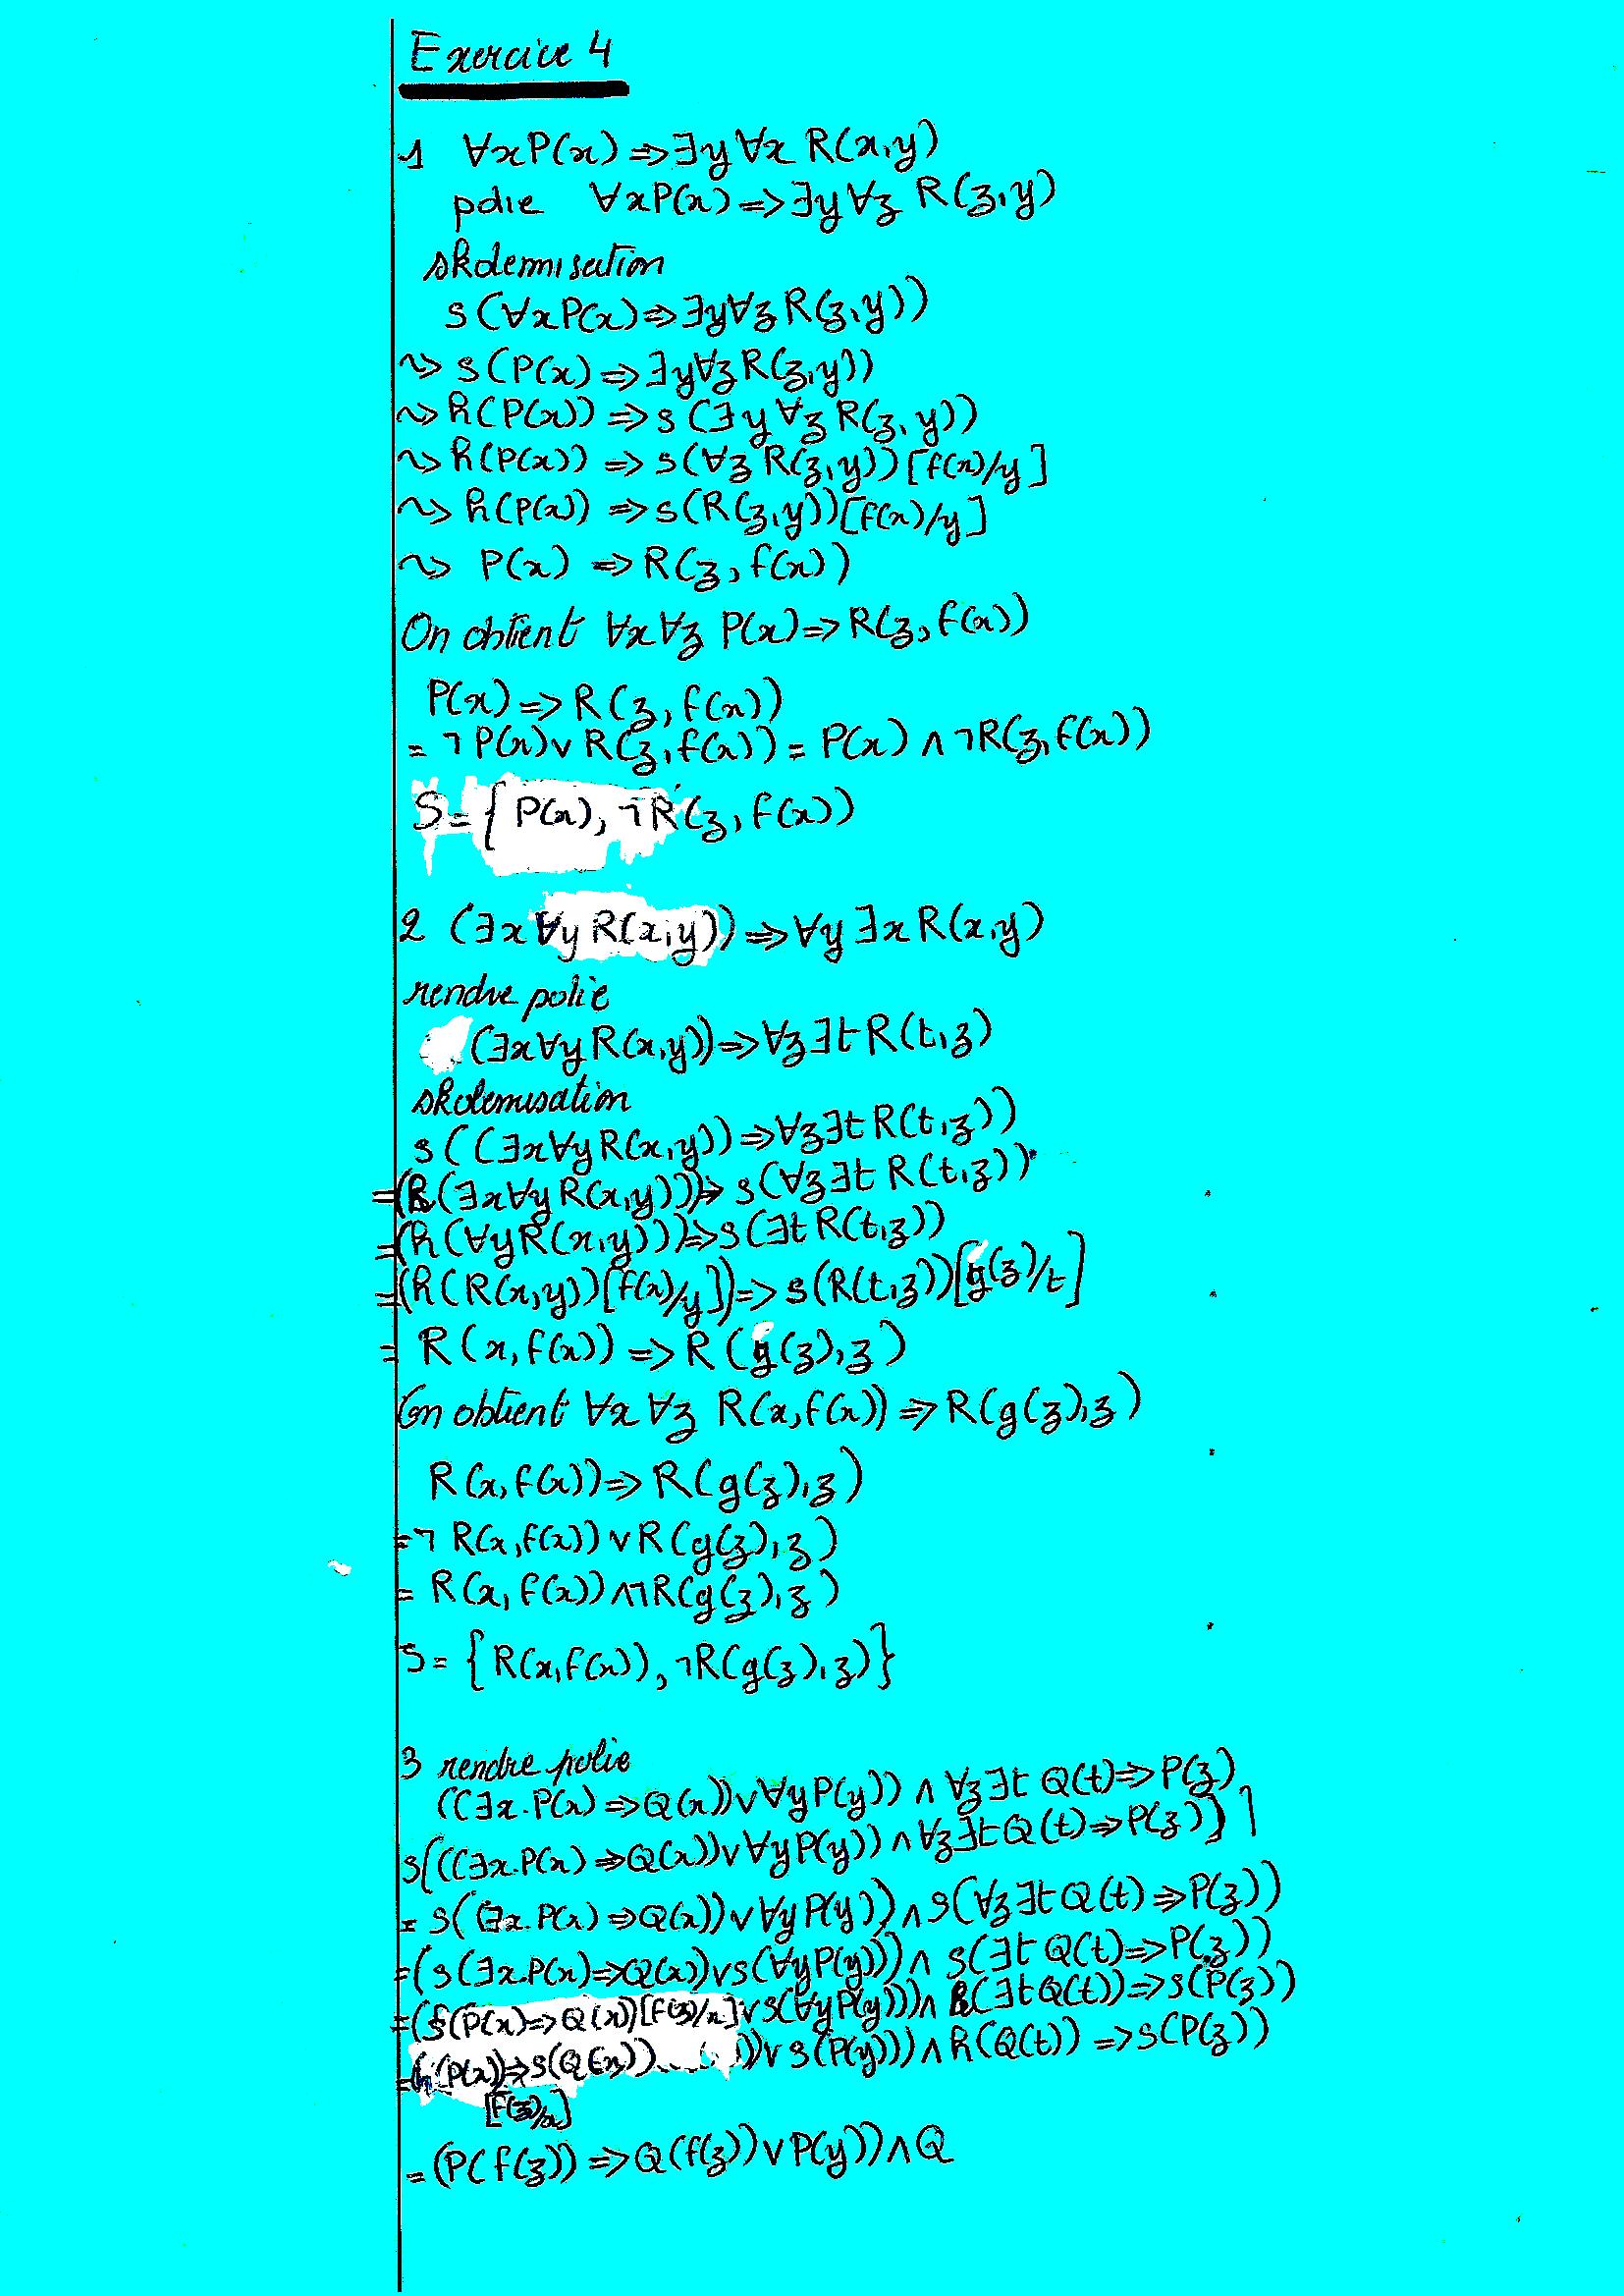 Exercice 4
1 ∀xP(x) => ∃y ∀x R(x,y)
polie ∀xP(x) => ∃y ∀z R(z,y)
skolemisation
s(∀xP(x) => ∃y∀z R(z,y))
⇝ s(P(x) => ∃y∀z R(z,y))
⇝ h(P(x)) => s(∃y ∀z R(z,y))
⇝ h(P(x)) => s(∀z R(z,y))[f(x)/y]
⇝ h(P(x)) => s(R(z,y))[f(x)/y]
⇝ P(x) => R(z, f(x))
On obtient ∀x∀z P(x) => R(z, f(x))
P(x) => R(z, f(x))
= ¬P(x) ∨ R(z, f(x)) = P(x) ∧ ¬R(z, f(x))
S = { P(x), ¬R(z, f(x))
2 (∃x ∀y R(x,y)) => ∀y ∃x R(x,y)
rendre polie
(∃x∀y R(x,y)) => ∀z ∃t R(t,z)
skolemisation
s((∃x∀y R(x,y)) => ∀z∃t R(t,z))
= (h(∃x∀y R(x,y))) => s(∀z∃t R(t,z))
= (h(∀y R(x,y))) => s(∃t R(t,z))
= (h(R(x,y))[f(x)/y]) => s(R(t,z))[g(z)/t]
= R(x, f(x)) => R(g(z), z)
On obtient ∀x ∀z R(x, f(x)) => R(g(z), z)
R(x, f(x)) => R(g(z), z)
= ¬ R(x, f(x)) ∨ R(g(z), z)
= R(x, f(x)) ∧ ¬R(g(z), z)
S = {R(x, f(x)), ¬R(g(z), z)}
3 rendre polie
((∃x.P(x) => Q(x)) ∨ ∀y P(y)) ∧ ∀z∃t Q(t) => P(z)
s[((∃x.P(x) => Q(x)) ∨ ∀y P(y)) ∧ ∀z∃t Q(t) => P(z))]
= s((∃x.P(x) => Q(x)) ∨ ∀y P(y)) ∧ s(∀z∃t Q(t) => P(z))
= (s(∃x.P(x) => Q(x)) ∨ s(∀y P(y))) ∧ s(∃t Q(t) => P(z))
= (s(P(x) => Q(x))[f(z)/x] ∨ s(∀y P(y))) ∧ h(∃t Q(t)) => s(P(z))
= (h(P(x)) => s(Q(x)) ) ∨ s(P(y))) ∧ h(Q(t)) => s(P(z))
[f(z)/x]
= (P(f(z)) => Q(f(z)) ∨ P(y)) ∧ Q